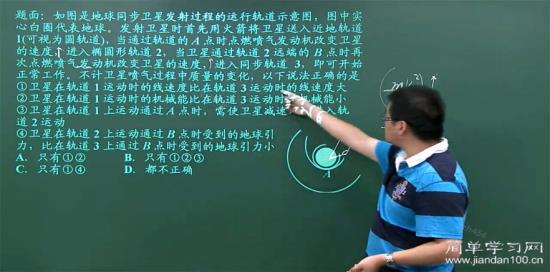 题面：如图是地球同步卫星发射过程的运行轨道示意图，图中实
心白圈代表地球。发射卫星时首先用火箭将卫星送入近地轨道
1(可视为圆轨道)，当通过轨道的A点时点燃喷气发动机改变卫星
的速度，进入椭圆形轨道2，当卫星通过轨道2远端的B点时再
次点燃喷气发动机改变卫星的速度，进入同步轨道3，即可开始
正常工作。不计卫星喷气过程中质量的变化，以下说法正确的是
①卫星在轨道1运动时的线速度比在轨道3运动时的线速度大
②卫星在轨道1运动时的机械能比在轨道3运动时的机械能小
③卫星在轨道1上运动通过A点时，需使卫星减速 入轨
道2运动
④卫星在轨道2上运动通过B点时受到的地球引
力，比在轨道3上通过B点时受到的地球引力小
A．只有①② B．只有①②③
C．只有①④ D．都不正确
A
简单学习网
www.jiandan100.cn